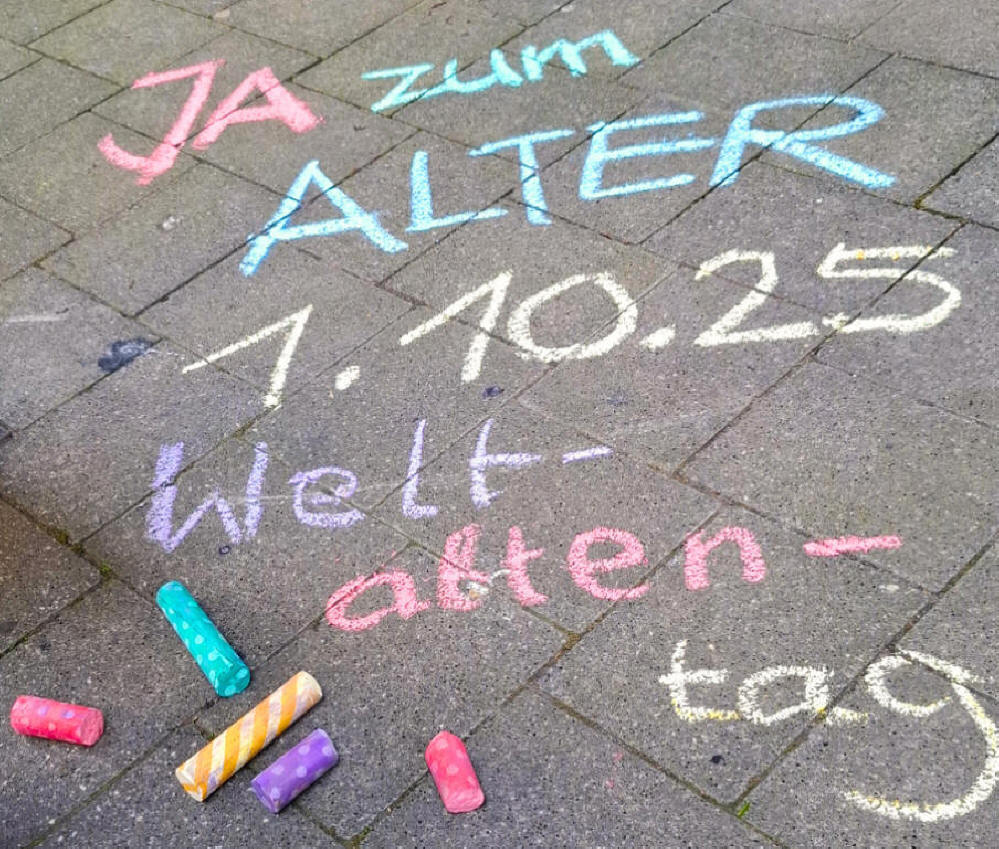 JA zum
ALTER
1.10.25
Welt-
alten-
tag